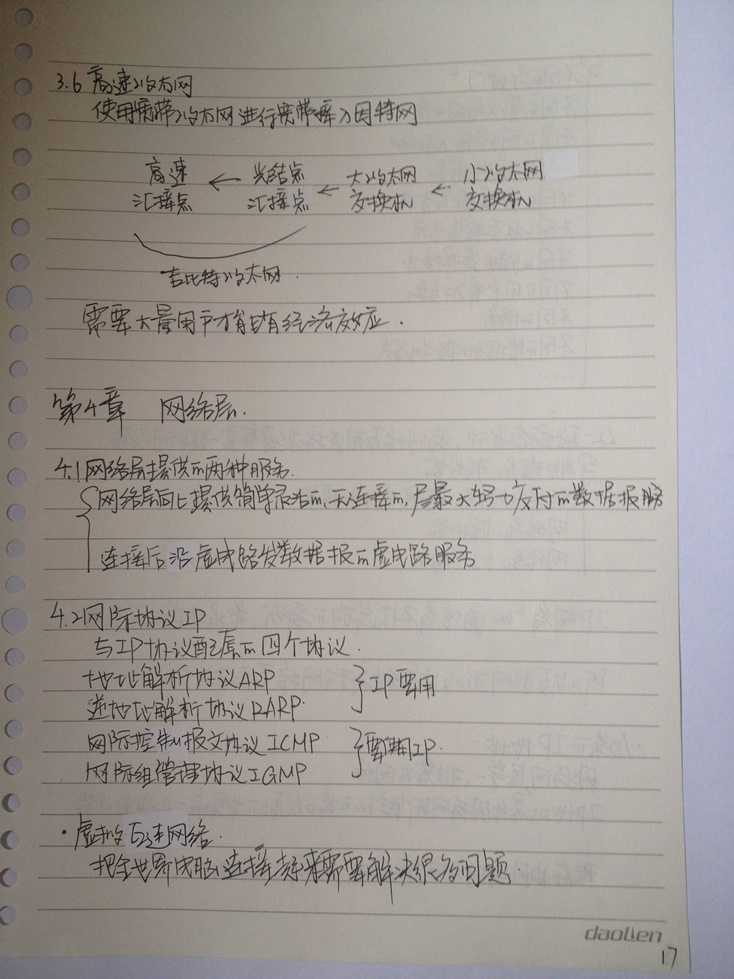 3.6 高速以太网
使用宽带以太网进行宽带接入因特网
高速 ← 光结点 ← 大以太网 ← 小以太网
汇接点 汇接点 交换机 交换机
吉比特以太网.
需要大量用户才能有经济效应.
第4章 网络层.
4.1网络层提供的两种服务.
网络层向上提供简单灵活的、无连接的、尽最大努力交付的数据报服务
连接后沿虚电路发数据报的虚电路服务
4.2网际协议IP
与IP协议配套的四个协议.
地址解析协议ARP
逆地址解析协议RARP.
} IP要用
网际控制报文协议ICMP
网际组管理协议IGMP
} 要用IP.
·虚拟互连网络.
把全世界电脑连接起来需要解决很多问题.
daolien
17